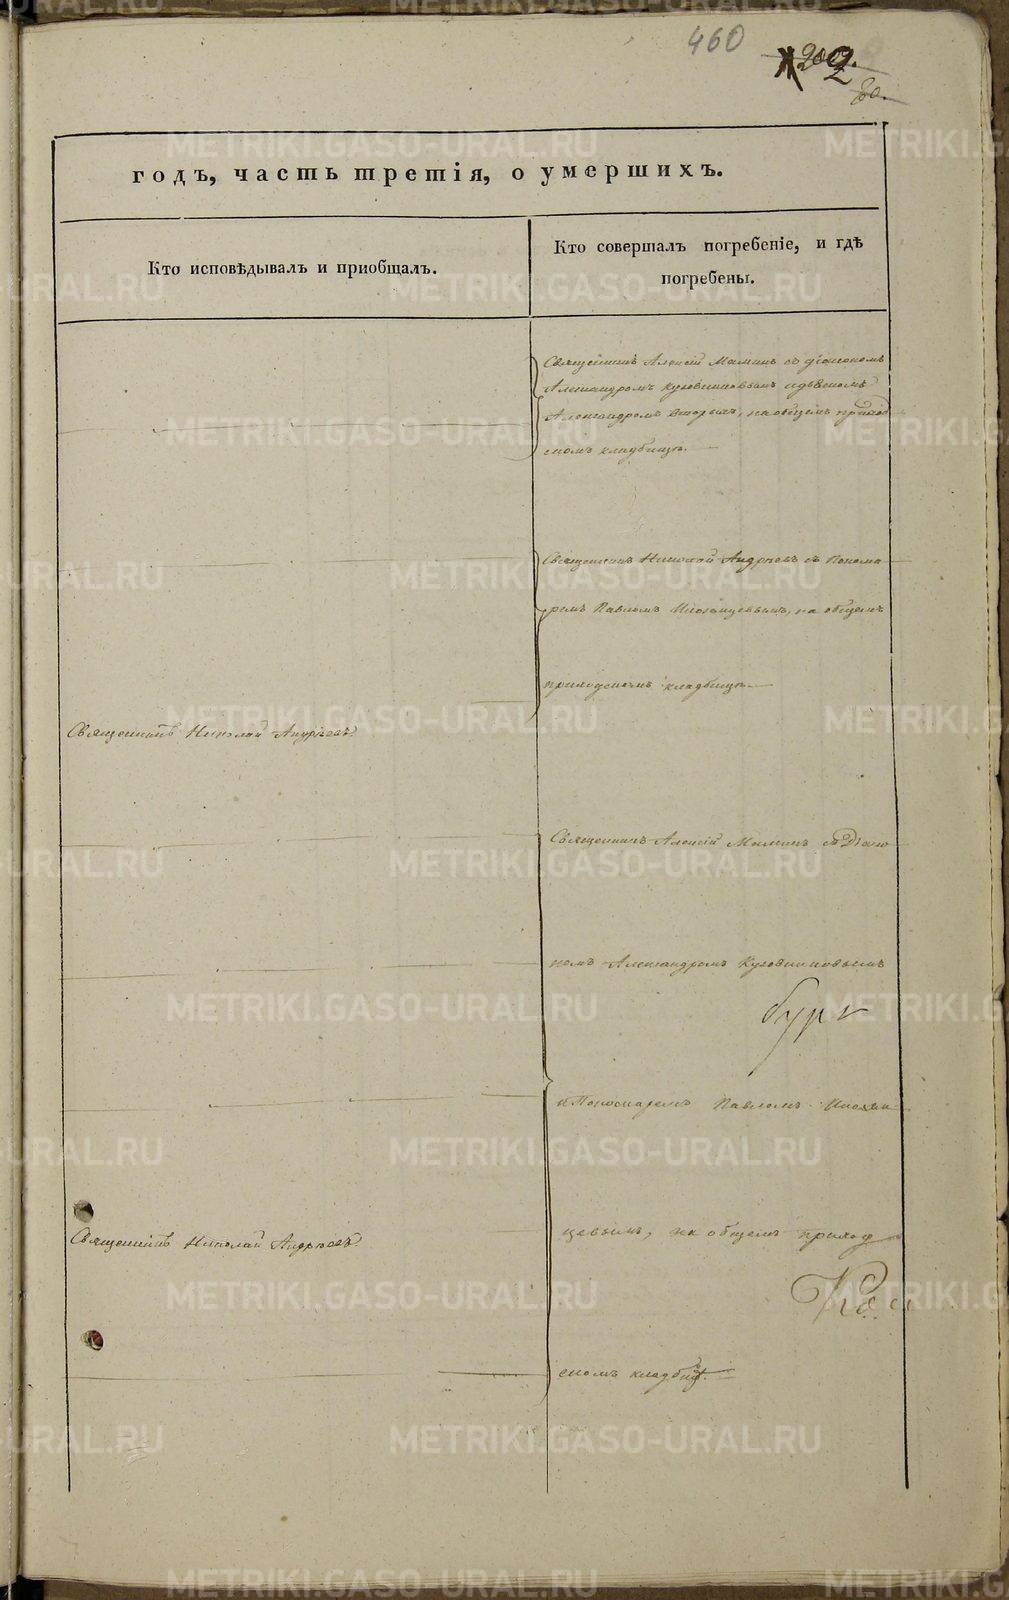 460
годъ, часть третія, о умершихъ.
Кто исповѣдывалъ и приобщалъ.
Кто совершалъ погребеніе, и гдѣ
погребены.
Священникъ Алексій Маминъ съ діакономъ
Александромъ Куховниковымъ
Александромъ на общемъ приход
скомъ кладбищѣ.
Священникъ Николай Андреевъ съ Понома
ремъ Павломъ на общемъ
приходскомъ кладбищѣ.
Священникъ Николай Андреевъ.
Священникъ Алексій Маминъ съ Діако
номъ Александромъ Куховниковымъ
и Пономаремъ Павломъ
цевымъ, на общемъ приход
Священникъ Николай Андреевъ
скомъ кладбищ.
METRIKI.GASO-URAL.RU